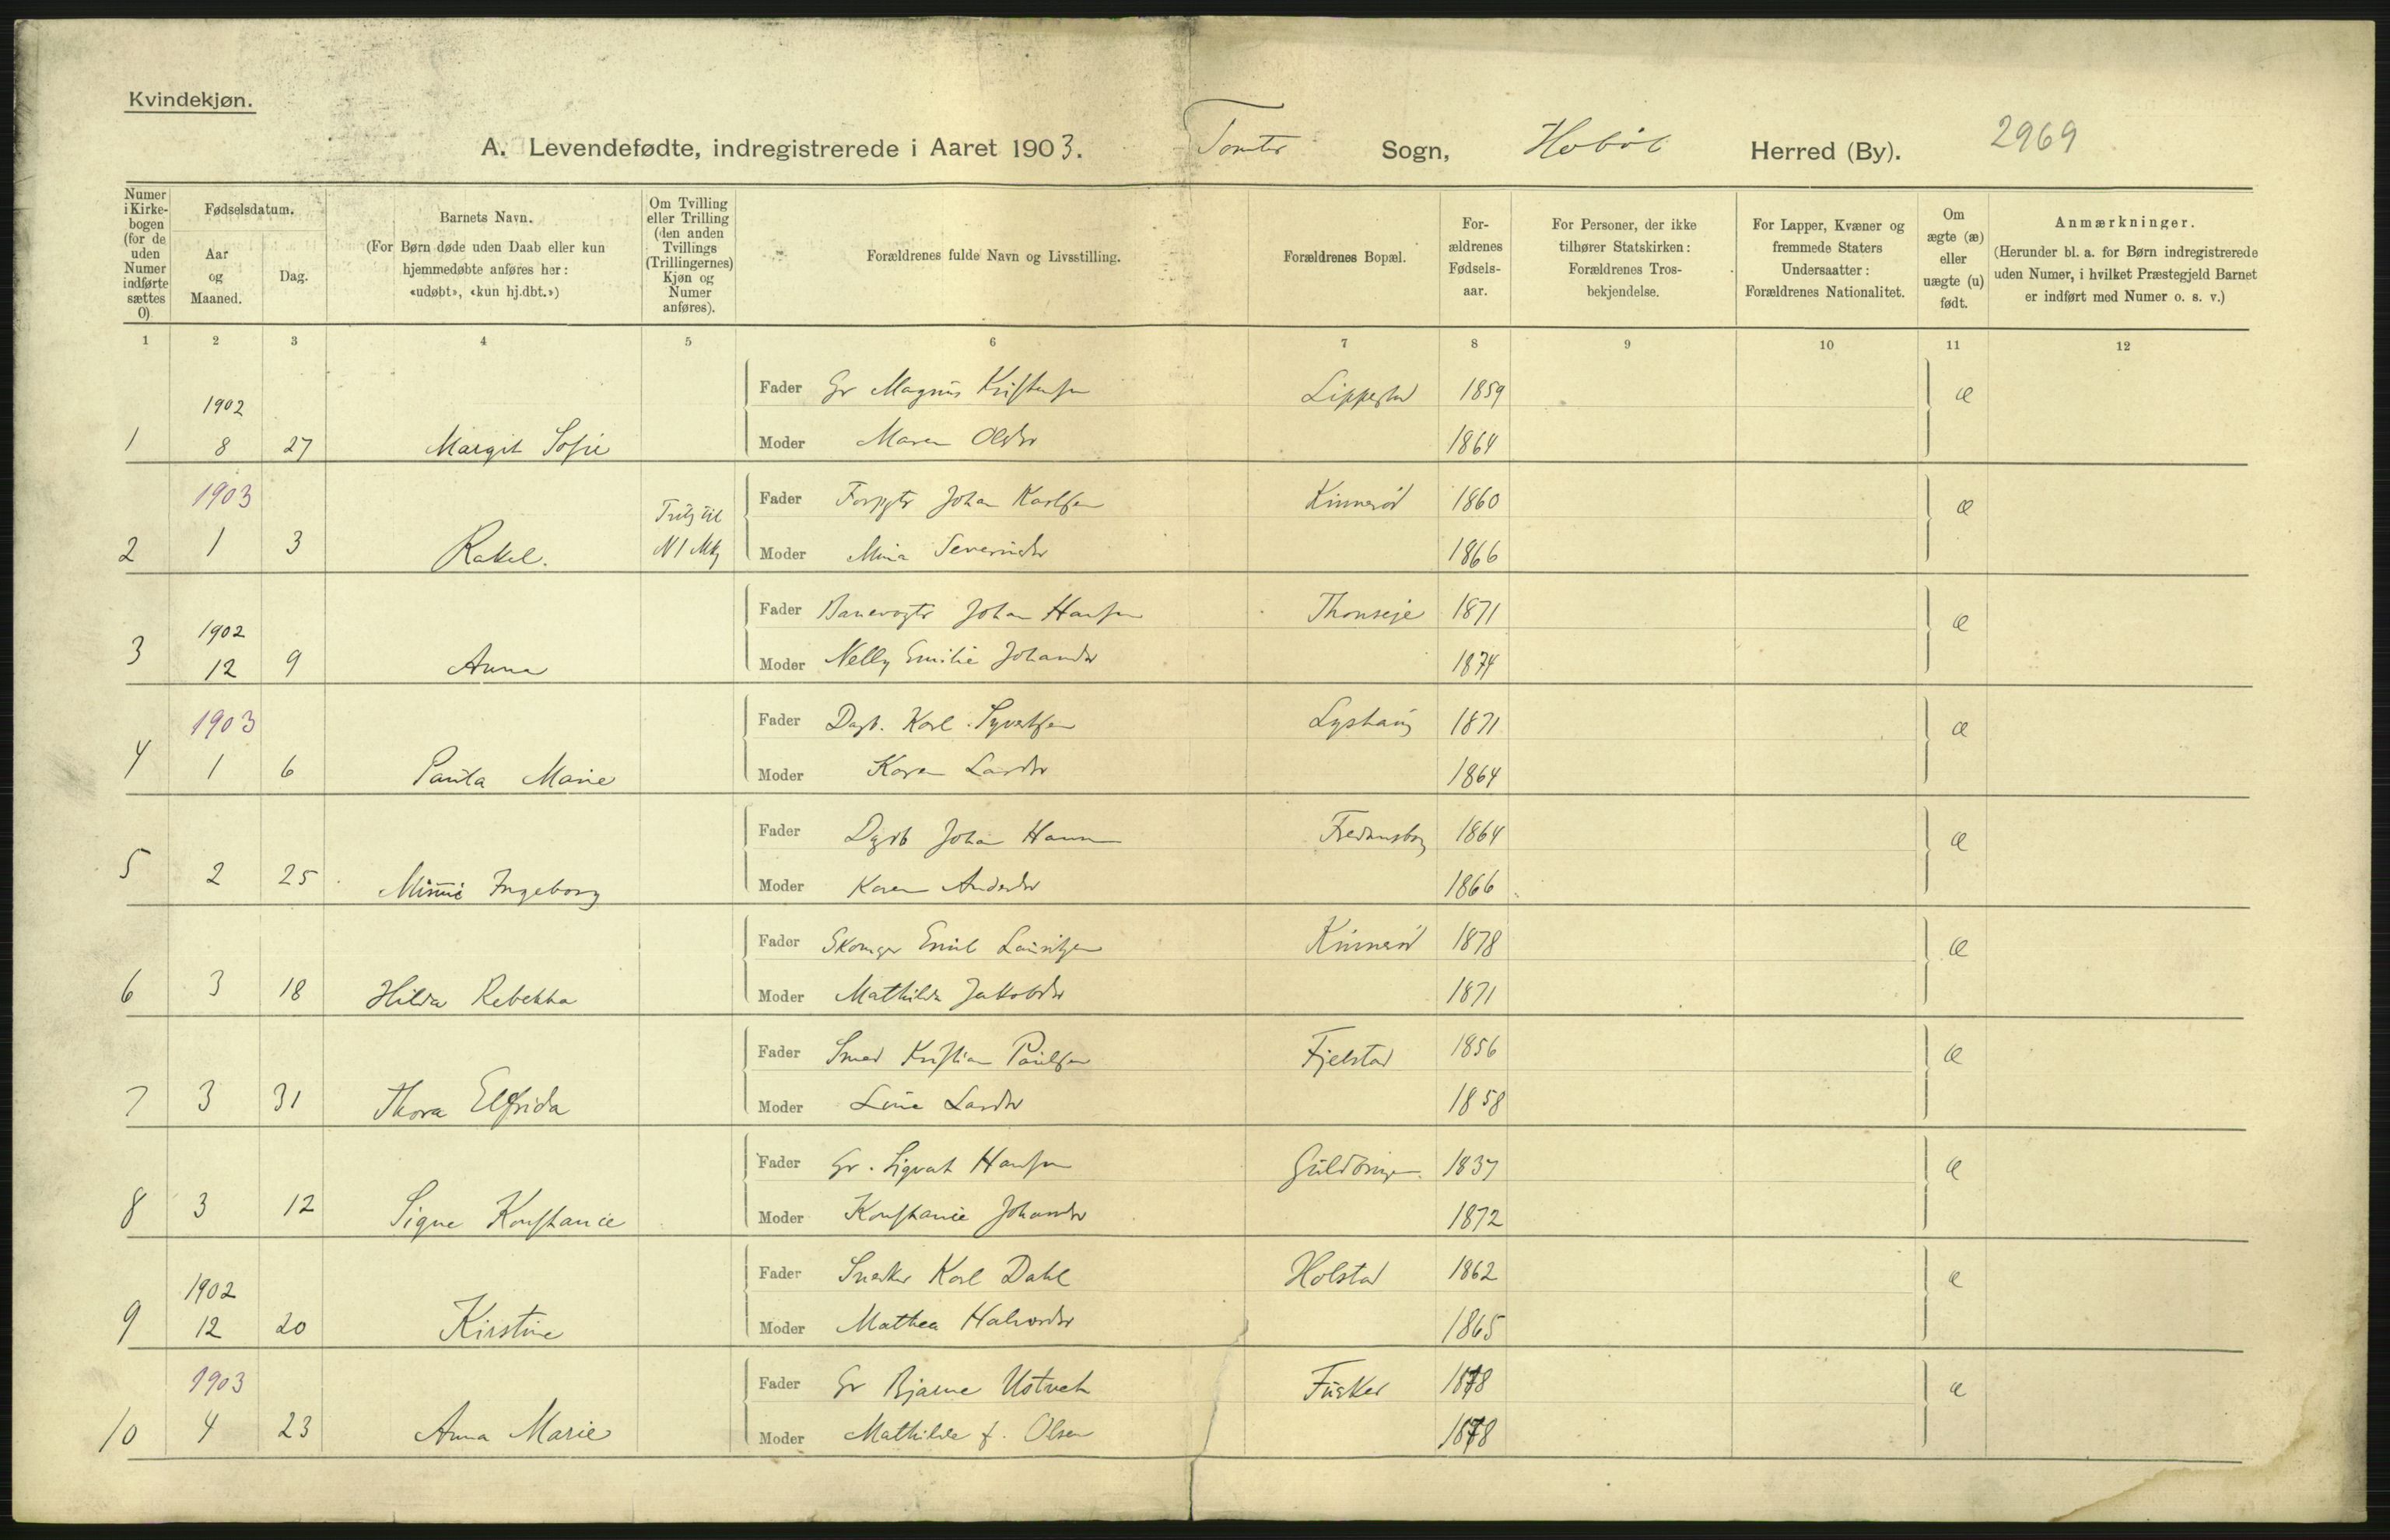 Kvindekjøn.
A. Levendefødte, indregistrerede i Aaret 1903. Tomter Sogn, Hobøl Herred (By). 2969
Numer i Kirke- bogen (for de uden Numer indførte sættes 0)
Fødselsdatum.
Aar og Maaned.
Dag.
Barnets Navn.
(For Børn døde uden Daab eller kun hjemmedøbte anføres her: «udøbt», «kun hj.dbt.»)
Om Tvilling eller Trilling (den anden Tvillings (Trillingernes) Kjøn og Numer anføres).
Forældrenes fulde Navn og Livsstilling.
Forældrenes Bopæl.
For- ældrenes Fødsels- aar.
For Personer, der ikke tilhører Statskirken: Forældrenes Tros- bekjendelse.
For Lapper, Kvæner og fremmede Staters Undersaatter: Forældrenes Nationalitet.
Om ægte (æ) eller uægte (u) født.
Anmærkninger.
(Herunder bl. a. for Børn indregistrerede uden Numer, i hvilket Præstegjeld Barnet er indført med Numer o. s. v.)
1 2 3 4 5 6 7 8 9 10 11 12
1902
Fader Gr Magnus Kristensen Lippestad 1859 æ
1 8 27 Margit Sofie Moder Maren Olsdtr 1864
1903
Fader Johan Karlsen Kinnerød 1860 æ
2 1 3 Rakel. N 1 Mkj Moder Mina Severinsdtr 1866
Fader Banevogter Johan Hansen Thonseje 1871 æ
1902
3 12 9 Anna Moder Nelly Emilie Johansdtr 1874
1903
Fader Dagb. Karl Syvertsen Lyshaug 1871 æ
4 1 6 Paula Marie Moder Karen Larsdtr 1864
Fader Dgrb Johan Hansen 1864 æ
5 2 25 Minnie Ingeborg Moder Karen Andersdtr 1866
Fader Skomager Emil Lauritzen Kinnerød 1878 æ
6 3 18 Hilda Rebekka Moder Mathilda Jakobsdtr 1871
Fader Smed Kristian Paulsen Fjelstad 1856 æ
7 3 31 Thora Elfrida Moder Line Larsdtr 1858
Fader Gr. Sigvart Hansen 1837 æ
8 3 12 Signe Konstance Moder Konstance Johansdtr 1872
Fader Snedker Karl Dahl Holstad 1862 æ
1902
9 12 20 Kirstine Moder Mathea Halvorsdtr 1865
1903
Fader Gr Bjarne Ustvet Fusker 1878 æ
10 4 23 Anna Marie Moder Mathilde f. Olsen 1878